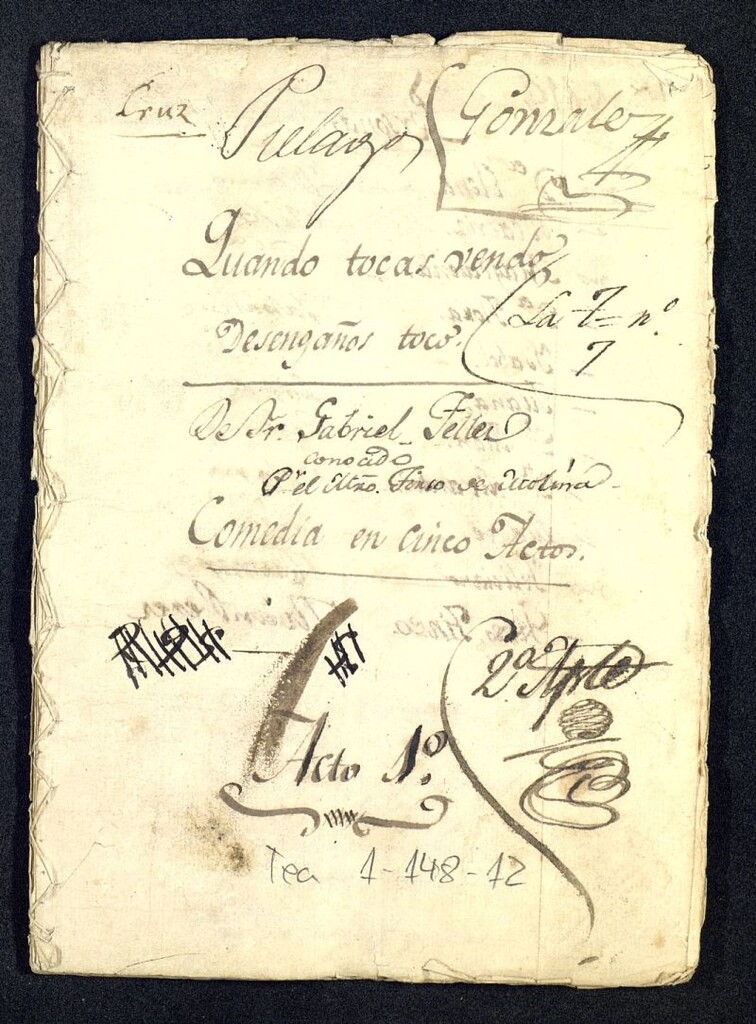 Cruz
Pielago
Gonzalez
Quando tocas vendo
Desengaños toco.
La 1ª nº
7
De Dr. Gabriel Tellez
conocido
Pr el Mtro. Tirso de Molina
Comedia en cinco Actos.
2º Apte
Acto 1º
Tea 1-148-12